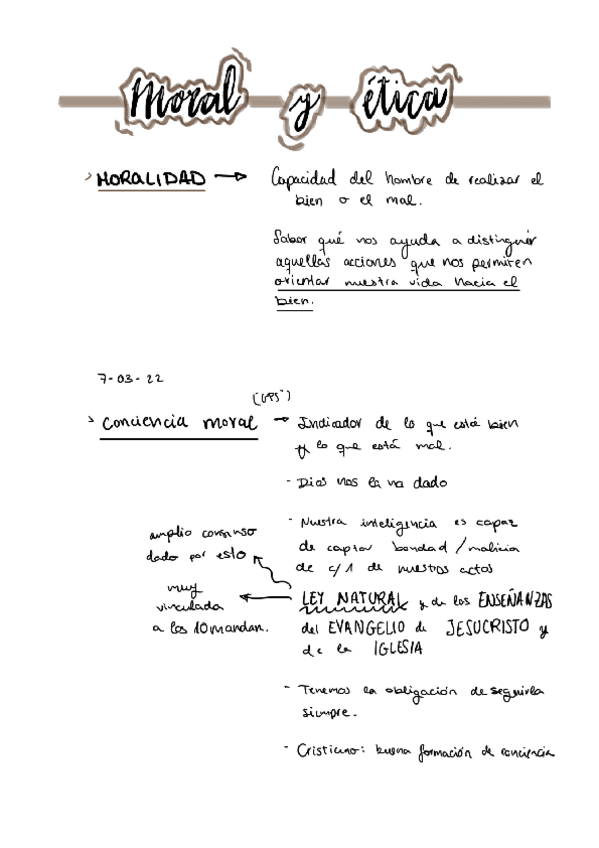 Moral y ética
> MORALIDAD → Capacidad del hombre de realizar el
bien o el mal.
Saber qué nos ayuda a distinguir
aquellas acciones que nos permiten
orientar nuestra vida hacia el
bien.
7-03-22
("GPS")
> Conciencia moral → Indicador de lo que está bien
y lo que está mal.
- Dios nos la ha dado
- Nuestra inteligencia es capaz
de captar bondad/malicia
de c/1 de nuestros actos
amplio consenso
dado por esto
muy
vinculada
a los 10 mandan.
LEY NATURAL y de las ENSEÑANZAS
del EVANGELIO de JESUCRISTO y
de la IGLESIA
- Tenemos la obligación de seguirla
siempre.
- Cristiano: buena formación de conciencia